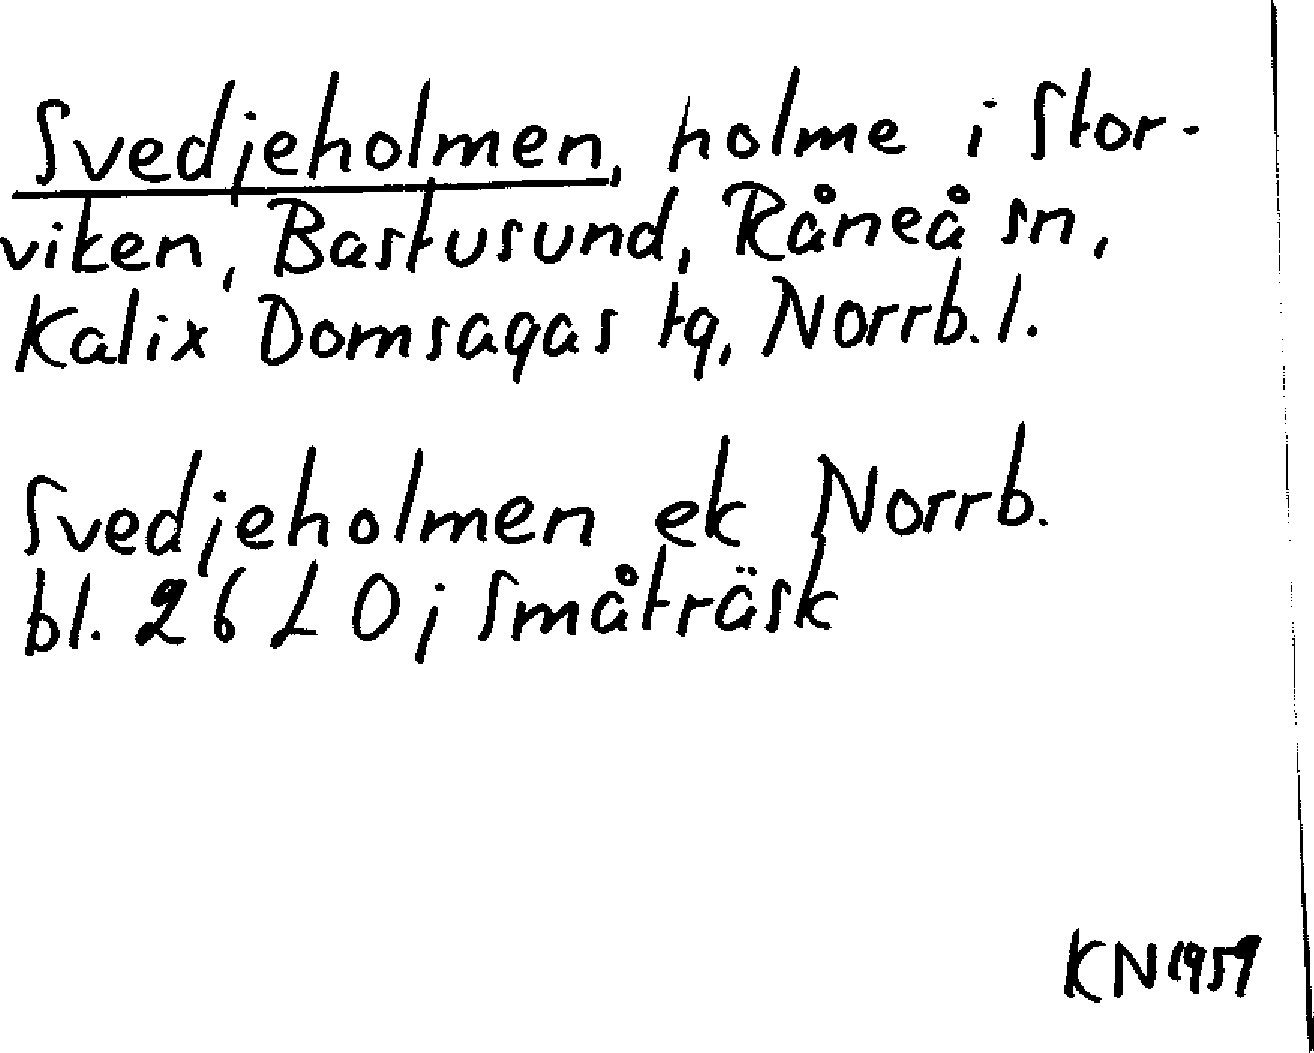 Svedjeholmen, holme i Stor-
viken, Bastusund, Råneå sn,
Kalix Domsagas tg, Norrb. l.
Svedjeholmen ek Norrb.
bl. 26 L O; Småträsk
KN 1959